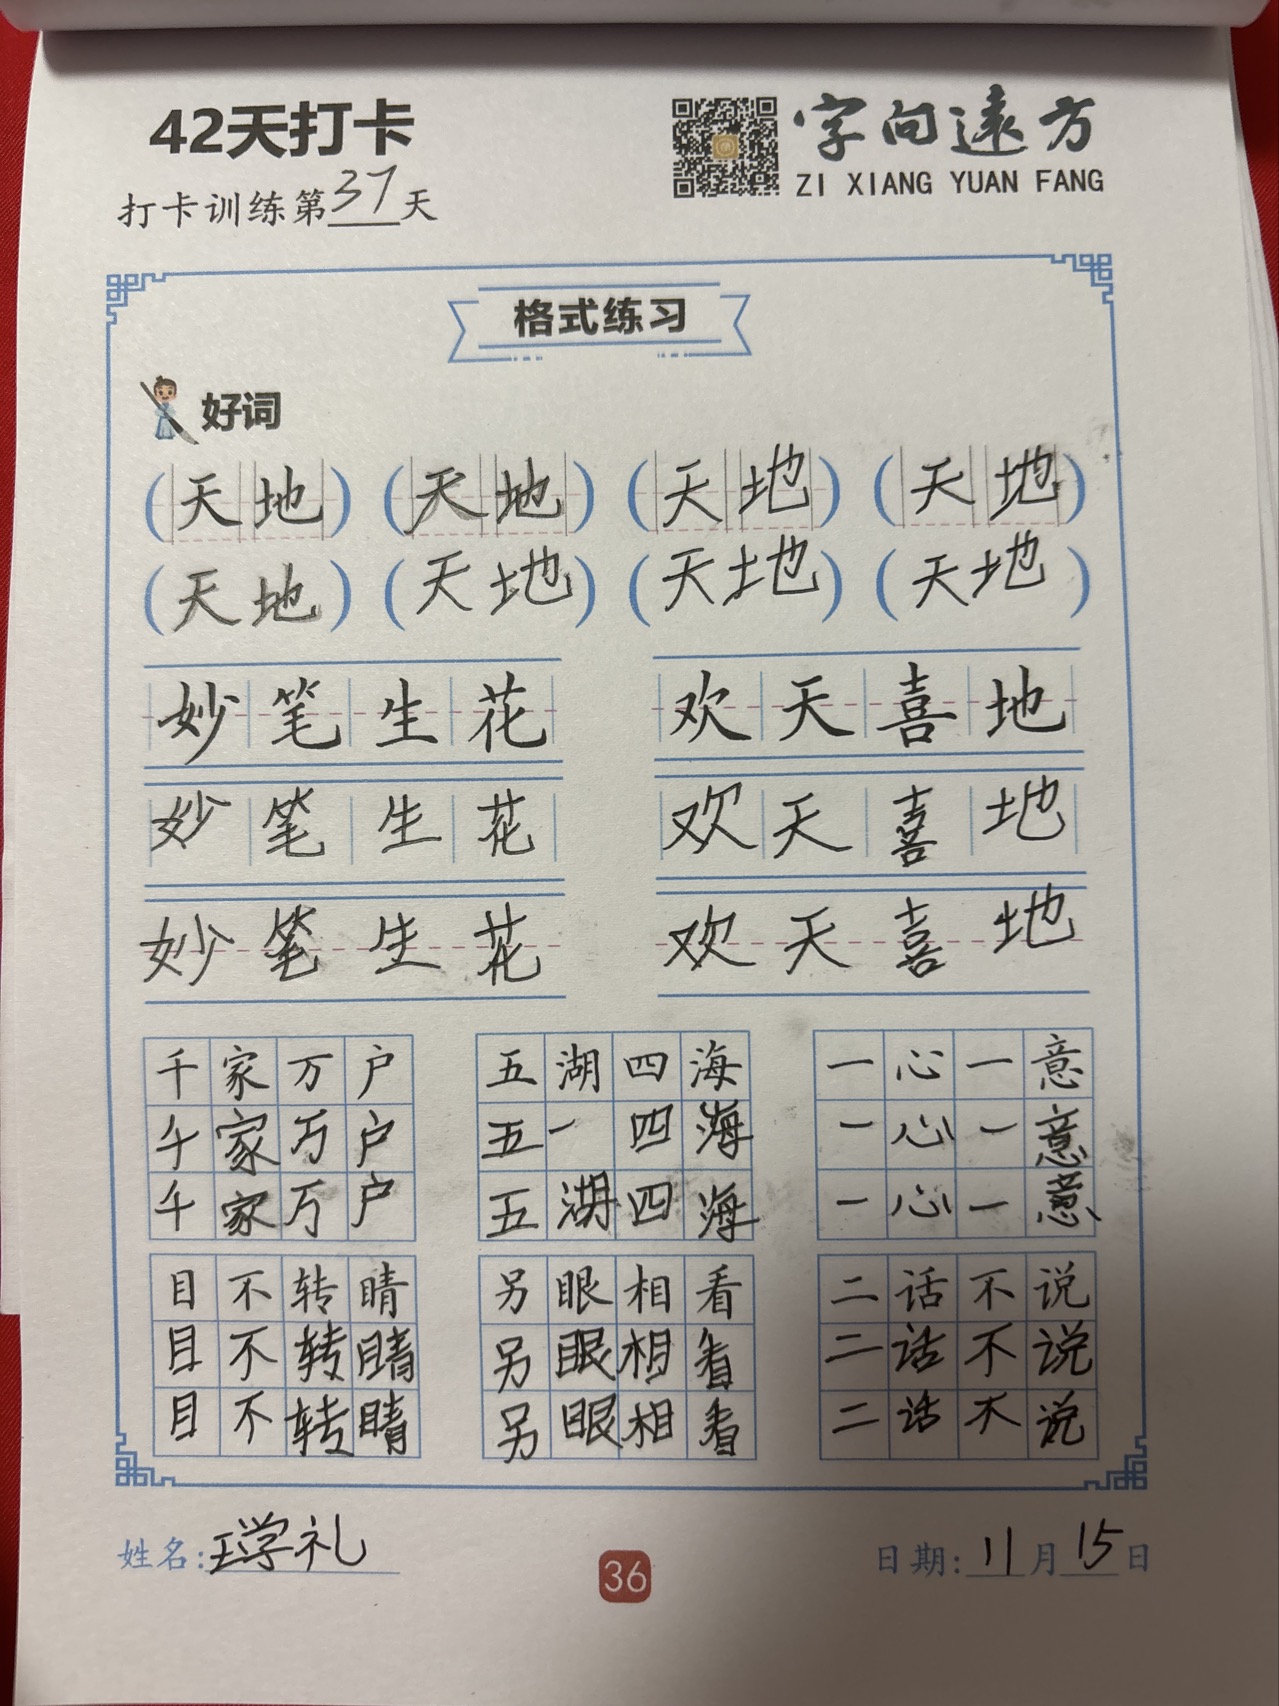 42天打卡
字向遠方
ZI XIANG YUAN FANG
打卡训练第37天
格式练习
好词
(天地) (天地) (天地) (天地)
(天地) (天地) (天地) (天地)
妙笔生花 欢天喜地
妙笔生花 欢天喜地
妙笔生花 欢天喜地
千家万户 五湖四海 一心一意
千家万户 五一四海 一心一意
千家万户 五湖四海 一心一意
目不转睛 另眼相看 二话不说
目不转睛 另眼相看 二话不说
目不转睛 另眼相看 二话不说
姓名:王学礼 36 日期:11月15日